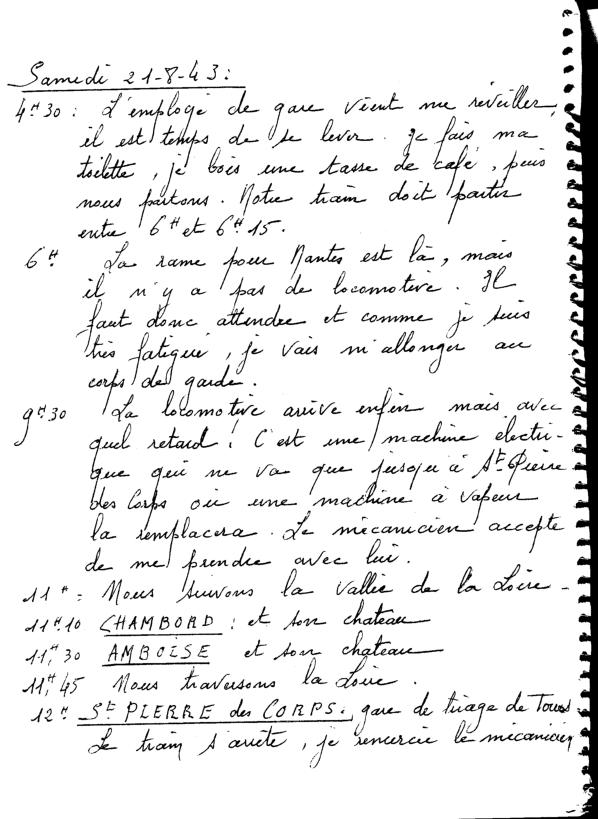 Samedi 21-8-43:
4H30 : L'employé de gare vient me réveiller,
il est temps de se lever. Je fais ma
toilette, je bois une tasse de café, puis
nous partons. Notre train doit partir
entre 6H et 6H15.
6H La rame pour Nantes est là, mais
il n'y a pas de locomotive. Il
faut donc attendre et comme je suis
très fatigué, je vais m'allonger au
corps de garde.
9H30 La locomotive arrive enfin mais avec
quel retard! C'est une machine électri-
que qui ne va que jusqu'à St Pierre
des Corps où une machine à vapeur
la remplacera. Le mécanicien accepte
de me prendre avec lui.
11H = Nous suivons la vallée de la Loire -
11H10 CHAMBORD : et son chateau
11H,30 AMBOISE et son chateau
11H,45 Nous traversons la Loire.
12H St PIERRE des CORPS. gare de triage de Tours
Le train s'arrête, je remercie le mécanicien